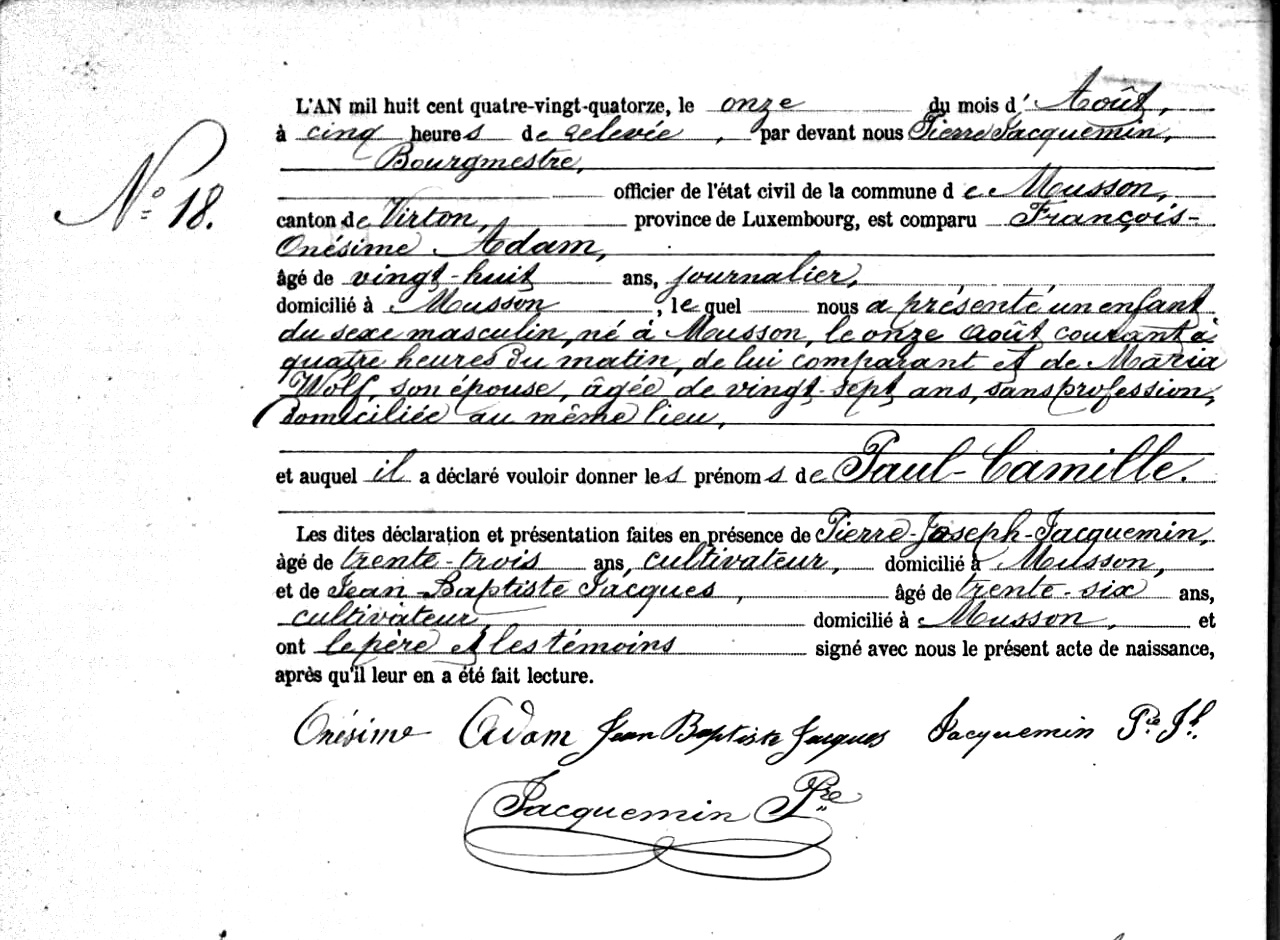 L'AN mil huit cent quatre-vingt-quatorze, le onze du mois d' Août,
à cinq heures de relevée, par devant nous Pierre Jacquemin,
Bourgmestre,
officier de l'état civil de la commune de Musson,
N° 18.
canton de Virton, province de Luxembourg, est comparu François-
Onésime Adam,
âgé de vingt-huit ans, journalier,
domicilié à Musson, lequel nous a présenté un enfant
du sexe masculin, né à Musson, le onze Août courant à
quatre heures du matin, de lui comparant et de Maria
Wolf, son épouse, âgée de vingt-sept ans, sans profession,
domiciliée au même lieu,
et auquel il a déclaré vouloir donner les prénoms de Paul-Camille.
Les dites déclaration et présentation faites en présence de Pierre-Joseph-Jacquemin,
àgé de trente-trois ans, cultivateur, domicilié à Musson,
et de Jean-Baptiste Jacques, âgé de trente-six ans,
cultivateur, domicilié à Musson, et
ont le père et les témoins signé avec nous le présent acte de naissance,
après qu'il leur en a été fait lecture.
Onésime Adam Jean Baptiste Jacques Jacquemin Pre Jh
Jacquemin Pre